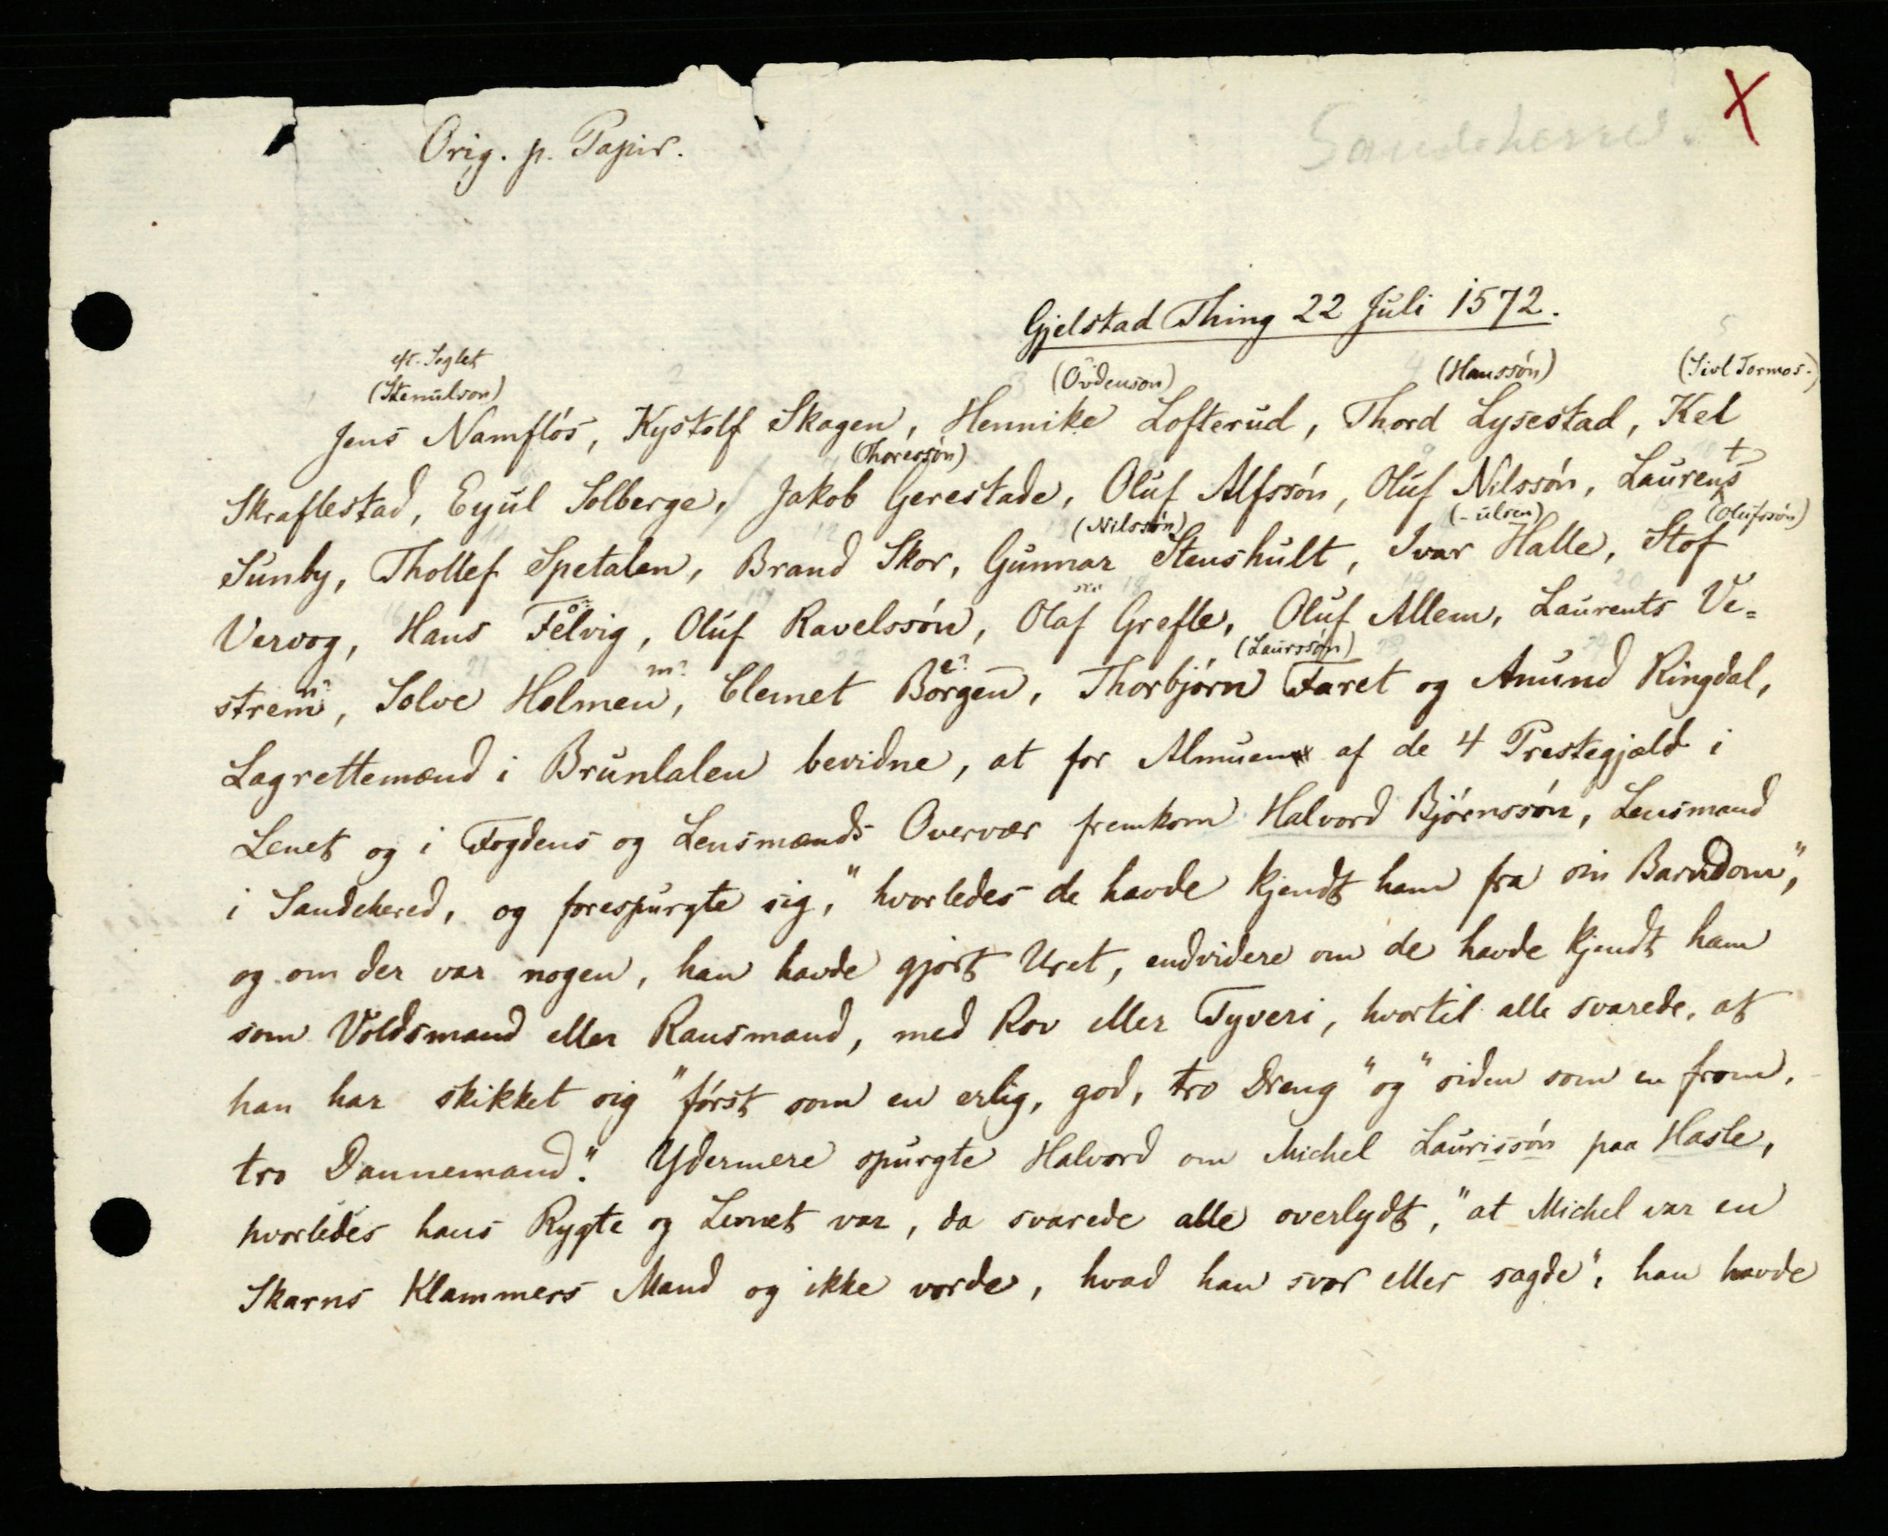 Orig. p. Papir.
Sandeherred.
X
Gjelstad Thing 22 Juli 1572.
eft. Seglet
(Stenulson) (Óvdenson) (Hanssón) (Sivl Tormos.)
Jens Namflós, Kystolf Skagen, Hennike Lofterud, Thord Lysestad, Kel
(Thoressón)
Skraflestad, Eyul Solberge, Jakob Gerestade, Oluf Alfssón, Oluf Nilssón, Laurents
(Nilssón) (-ulsen) (Olufssón)
Sunby, Thollef Spetalen, Brand Skor, Gunnar Stenshult, Ivar Halle, Stof
Vervog, Hans Felvig, Oluf Ravelssón, Olaf Grefle, Oluf Allem, Laurents Ve=
(Laurssón)
strem, Solve Holmen, Clemet Borgen, Thorbjórn Faret og Anund Ringdal,
Lagrettemænd i Brunlalen bevidne, at for Almuen af de 4 Prestegjæld i
Lenet og i Fogdens og Lensmænds Overvær fremkom Halvord Bjórnssón, Lensmand
i Sandehered, og forespurgte sig, "hvorledes de havde kjendt ham fra sin Barndom",
og om der var nogen, han havde gjórt Uret, endvidere om de havde kjendt ham
som Voldsmand eller Ransmand, med Rov eller Tyveri, hvortil alle svarede, at
han har skikket sig "fórst som en erlig, god, tro Dreng" og "siden som en from,
tro Dannemand." Ydermere spurgte Halvord om Michel Laurissón paa Hasle,
hvorledes hans Rygte og Levnet var, da svarede alle overlydt, "at Michel var en
Skarns Klammers Mand og ikke vorde, hvad han svor eller sagde", han havde